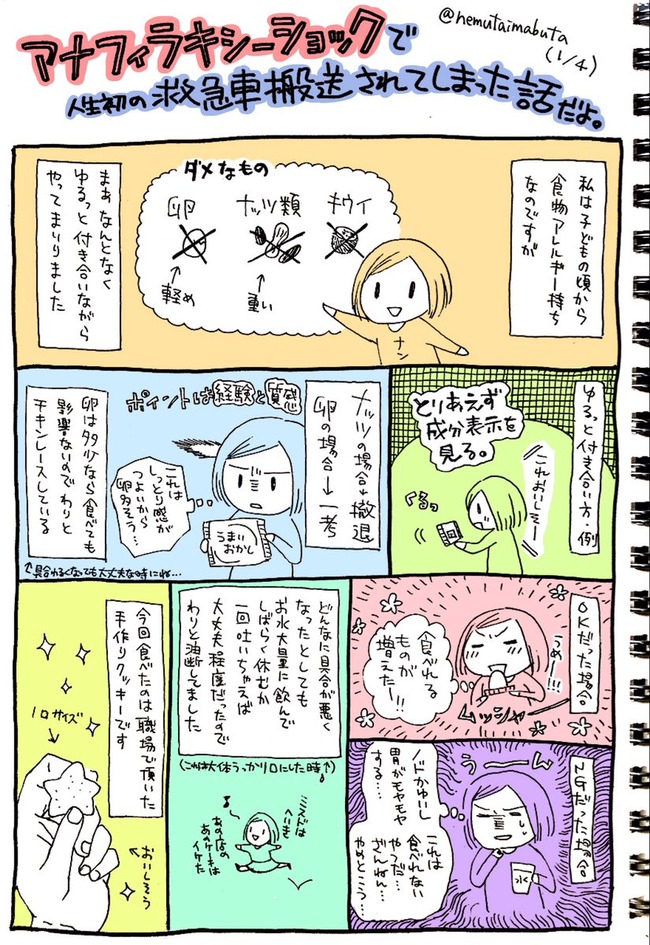 アナフィラキシーショックで
人生初の救急車搬送されてしまった話だよ。
@nemutaimabuta
(1/4)
私は子どもの頃から
食物アレルギー持ち
なのですが
ダメなもの
キウイ
ナッツ類
卵
重い
軽め
ナン
まぁなんとなく
ゆるっと付き合いながら
やってまいりました
ゆるっと付き合い方・例
とりあえず
成分表示を
見る。
これおいしそー
くるっ
ナッツの場合→撤退
卵の場合→一考
ポイントは経験と質感
これは
しっとり感が
つよいから
卵多そう…
うまい
おかし
卵は多少なら食べても
影響ないのでわりと
チキンレースしている
↑具合わるくなっても大丈夫な時にね…
OKだった場合
うめー!!!
食べれる
ものが
増えたー!!
ムッシャ
NGだった場合
う〜〜ん
ノドかゆいし
胃がモヤモヤ
する…
これは
食べれない
やつだ…
ざんねん…
やめとこう…
水
どんなに具合が悪く
なったとしても
お水大量に飲んで
しばらく休むか
一回吐いちゃえば
大丈夫程度だったので
わりと油断してました
(これは大体うっかり口にした時↑)
ミスドは
へいき
あの店の
あのケーキは
イケた
今回食べたのは職場で頂いた
手作りクッキーです
1口サイズ
←おいしそう